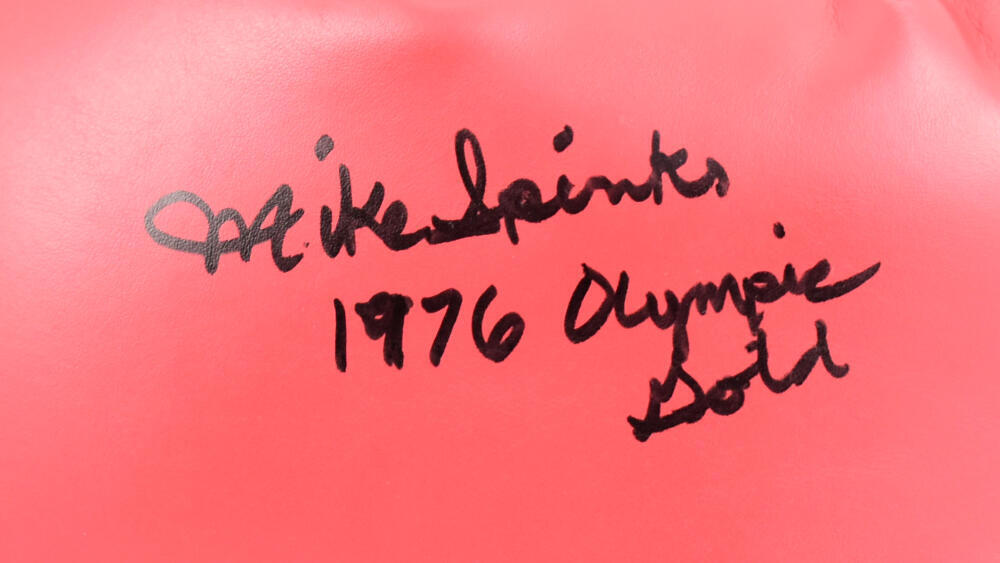 Mike Spinks
1976 Olympic
Gold